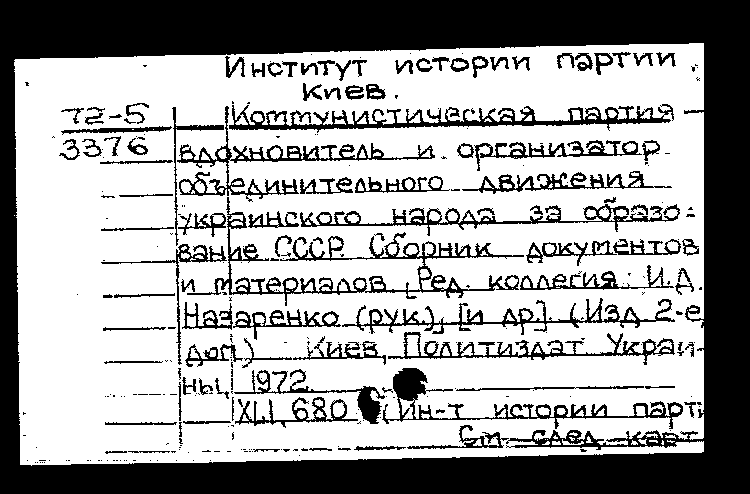 Институт истории партии.
Киев.
72-5 Коммунистическая партия —
3376 вдохновитель и организатор
объединительного движения
украинского народа за образо-
вание СССР. Сборник документов
и материалов. [Ред. коллегия: И.Д.
Назаренко (рук.), [и др]. (Изд 2-е,
доп.) Киев, Политиздат Украи-
ны, 1972.
XLI, 680 (Ин-т истории парти
См. след. карт